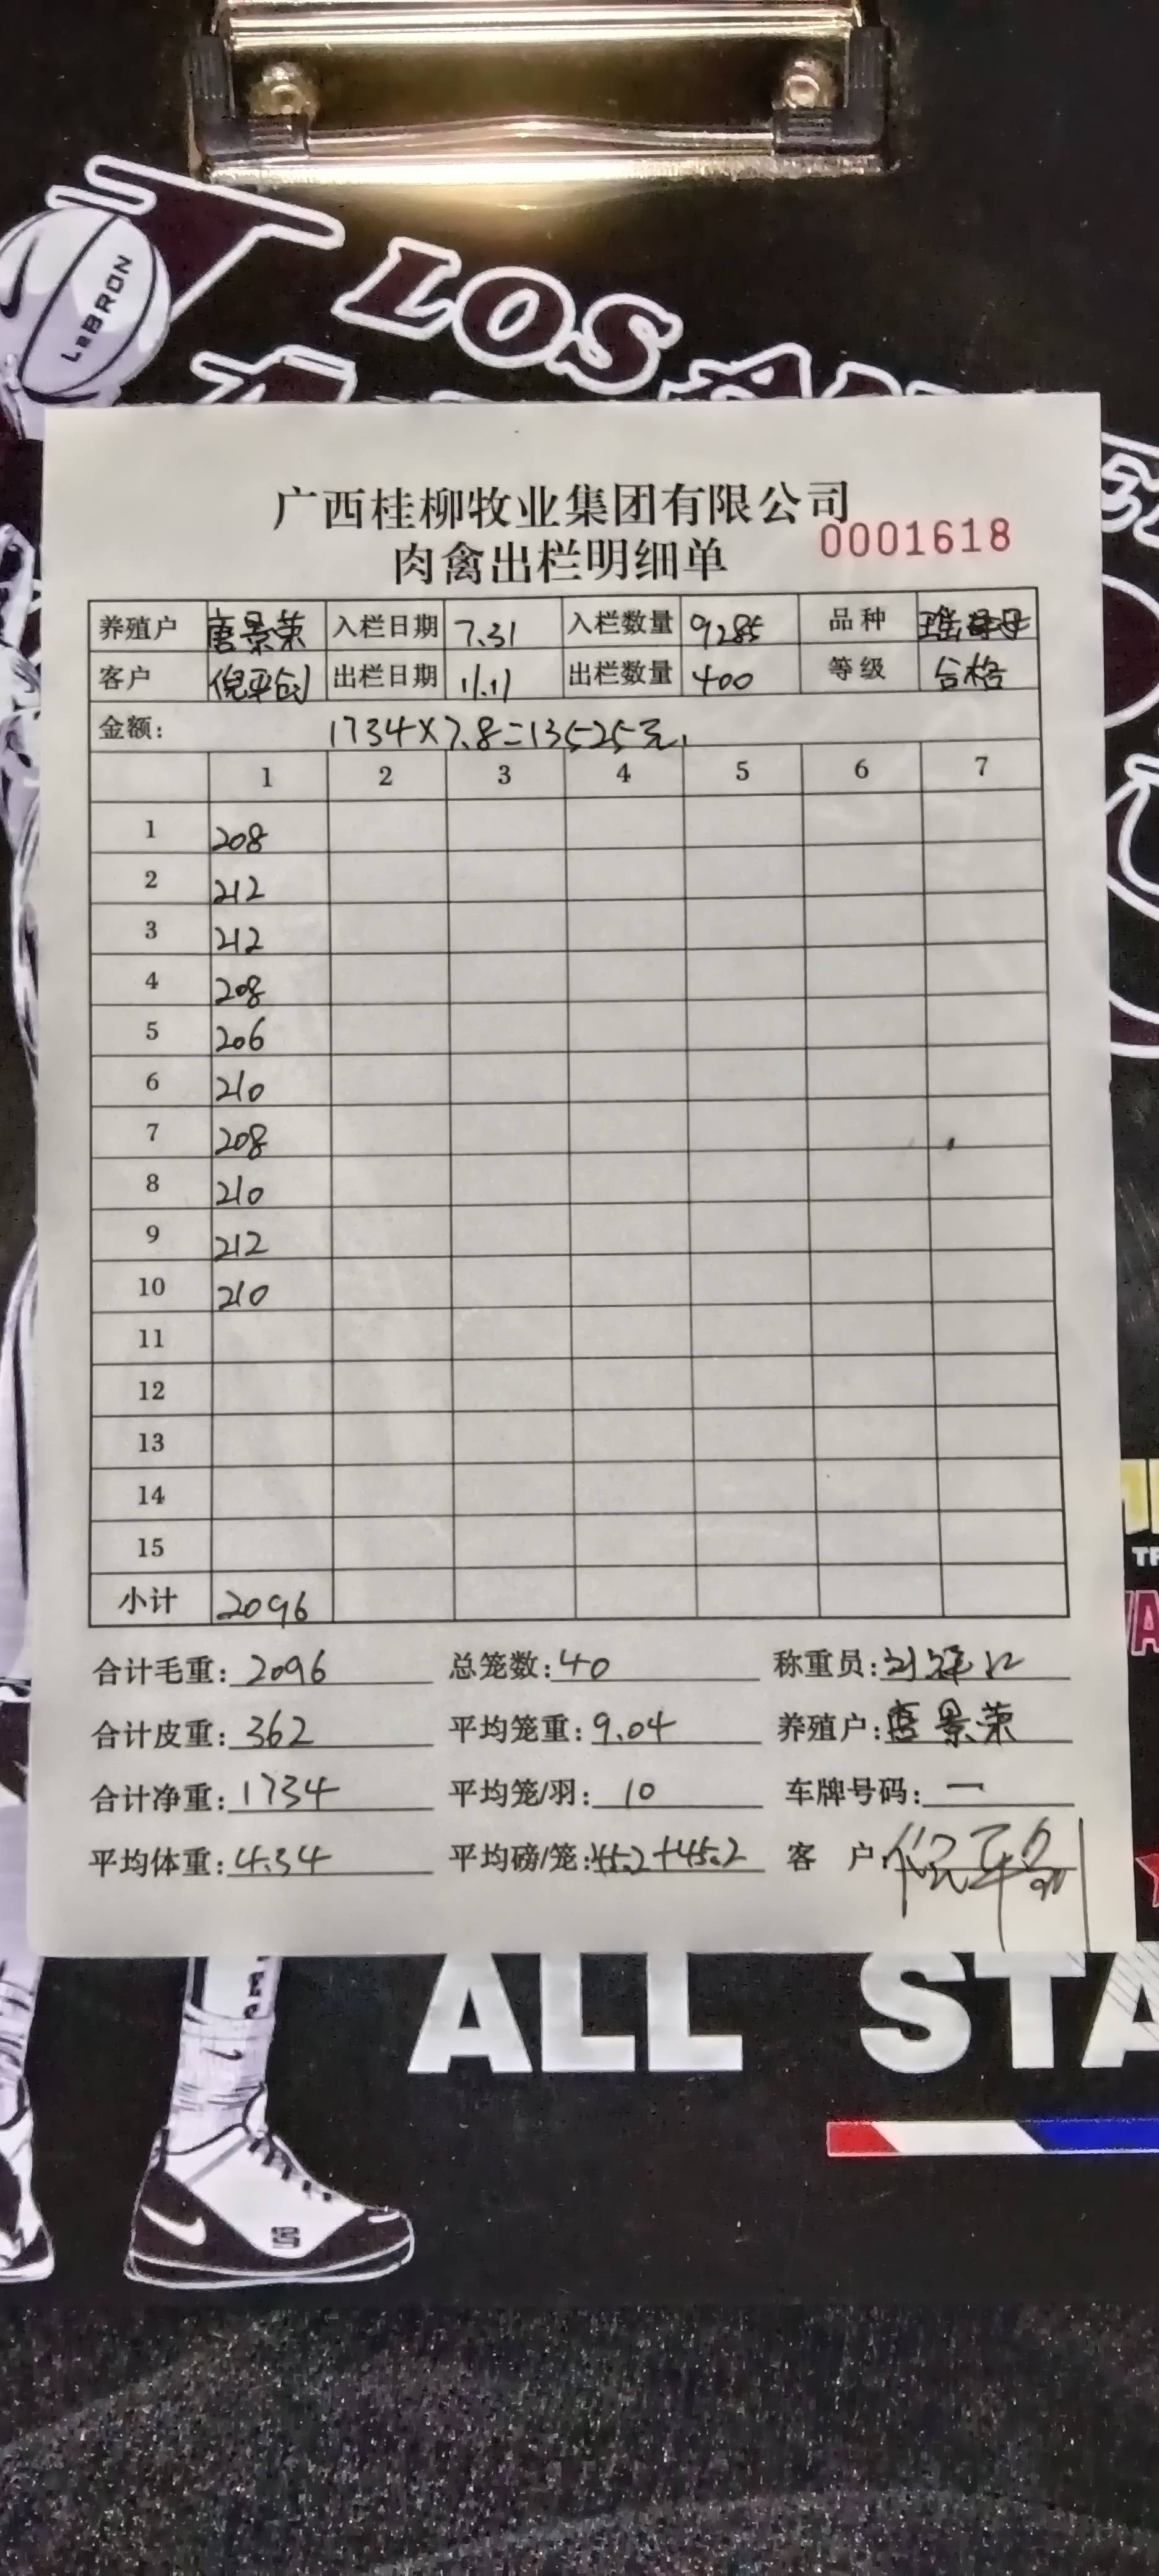 LeBRON
LOS
广西桂柳牧业集团有限公司
0001618
肉禽出栏明细单
养殖户 唐景荣 入栏日期 7.31 入栏数量 9285 品种 瑶
客户 倪平创 出栏日期 11.11 出栏数量 400 等级 合格
金额: 1734×7.8=13525元
1 2 3 4 5 6 7
1 208
2 212
3 212
4 208
5 206
6 210
7 208
8 210
9 212
10 210
11
12
13
14
15
小计 2096
合计毛重: 2096 总笼数: 40 称重员: 刘
合计皮重: 362 平均笼重: 9.04 养殖户: 唐景荣
合计净重: 1734 平均笼/羽: 10 车牌号码: 一
平均体重: 4.34 平均磅/笼: 45.2+45.2 客 户: 倪平创
ALL STA